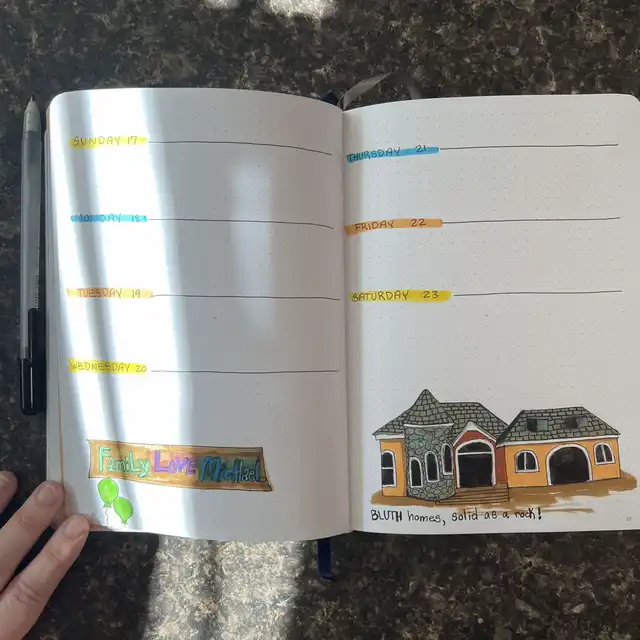 SUNDAY 17
MONDAY 18
TUESDAY 19
WEDNESDAY 20
FamiLy LOVE Michael
THURSDAY 21
FRIDAY 22
SATURDAY 23
BLUTH homes, solid as a rock!